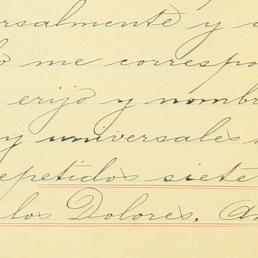 ersalmente y
o me correspo
erijo y nombr
y universales
epetidos siete
los Dolores. An